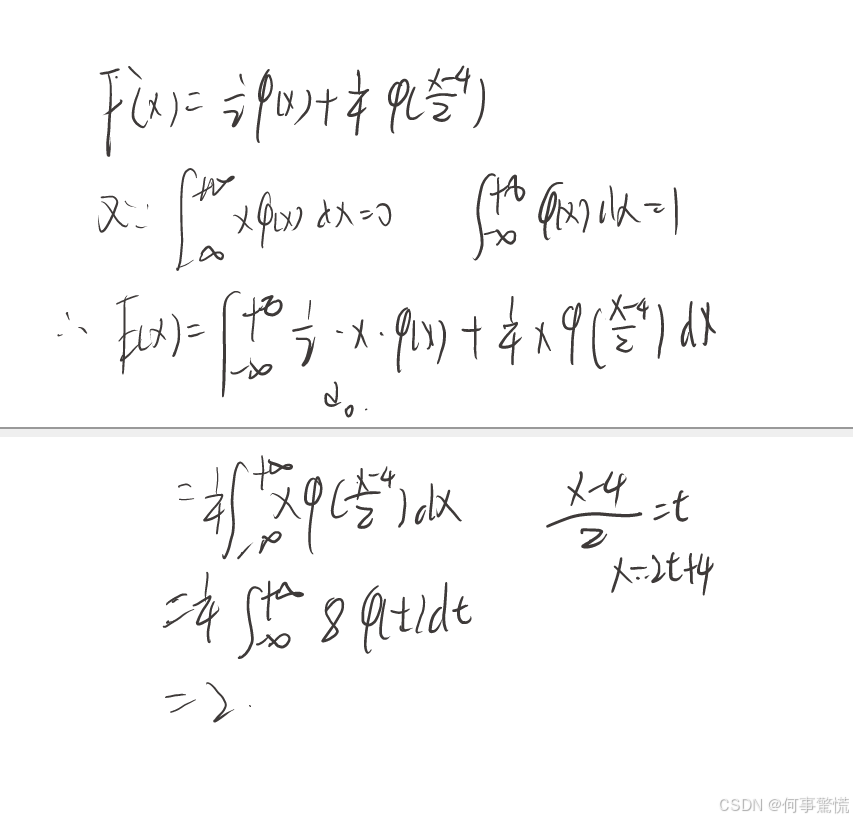 F'(x) = 1/2 φ(x) + 1/4 φ((x-4)/2)
又∵ ∫_{-∞}^{+∞} xφ(x) dx = 0    ∫_{-∞}^{+∞} φ(x) dx = 1
∴ E(x) = ∫_{-∞}^{+∞} 1/2 · x · φ(x) + 1/4 x φ((x-4)/2) dx
= 1/4 ∫_{-∞}^{+∞} x φ((x-4)/2) dx    (x-4)/2 = t
x = 2t+4
= 1/4 ∫_{-∞}^{+∞} 8 φ(t) dt
= 2.
CSDN @何事驚慌